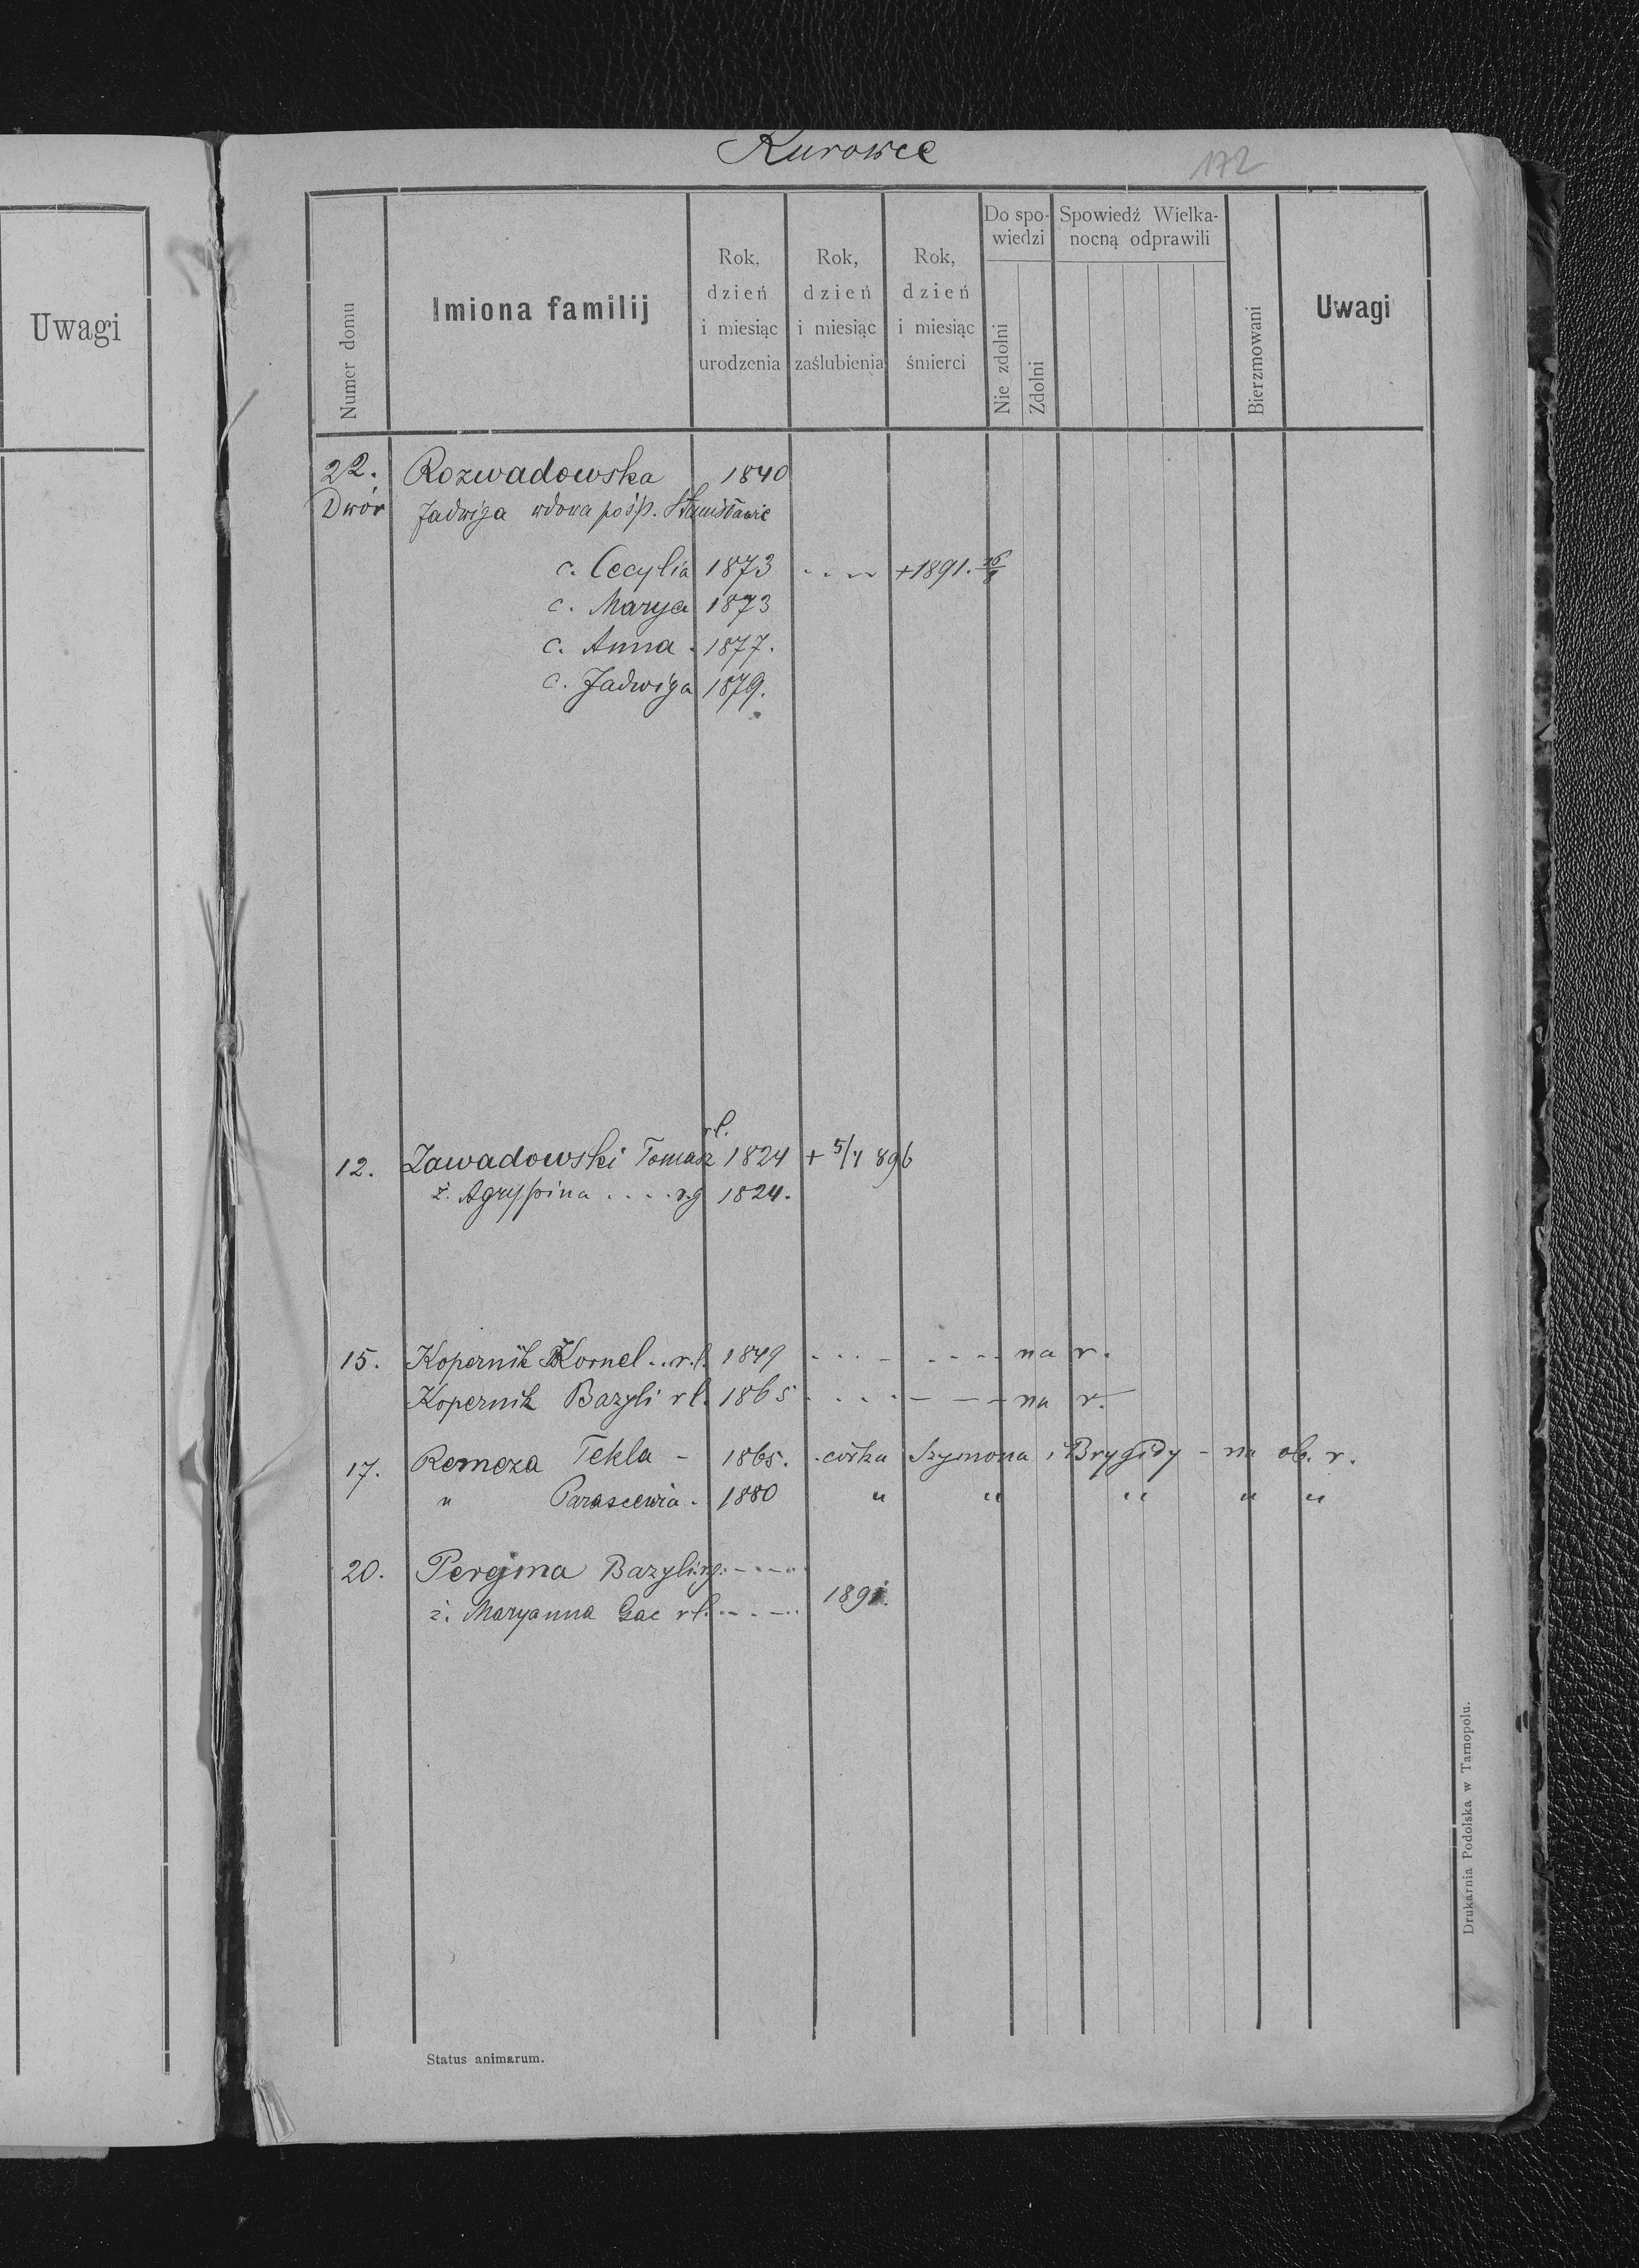 Uwagi
Kurowce
172
Numer domu
Imiona familij
Rok, dzień i miesiąc urodzenia
Rok, dzień i miesiąc zaślubienia
Rok, dzień i miesiąc śmierci
Do spo-
wiedzi
Nie zdolni
Zdolni
Spowiedź Wielka-
nocną odprawili
Bierzmowani
Uwagi
22. Rozwadowska 1840
Dwór Jadwiga wdowa po śp. Stanisławie
c. Cecylia 1873 .... +1891. 16/8
c. Marya 1873
c. Anna . 1877.
c. Jadwiga 1879.
rł.
12. Zawadowski Tomasz 1824 + 5/4 896
ż. Agrypina .... rg 1824.
15. Kopernik Kornel .. rł. 1849 ... - .... na r.
Kopernik Bazyli rł. 1865 .... - - - na r.
17. Remeza Tekla - 1865. córka Szymona i Brygidy - na ob. r.
" Parascewia . 1880 " " " " "
20. Perejma Bazyli rg. - ....
ż. Maryanna Gac rł. .. . - .. 1891.
Status animarum.
Drukarnia Podolska w Tarnopolu.